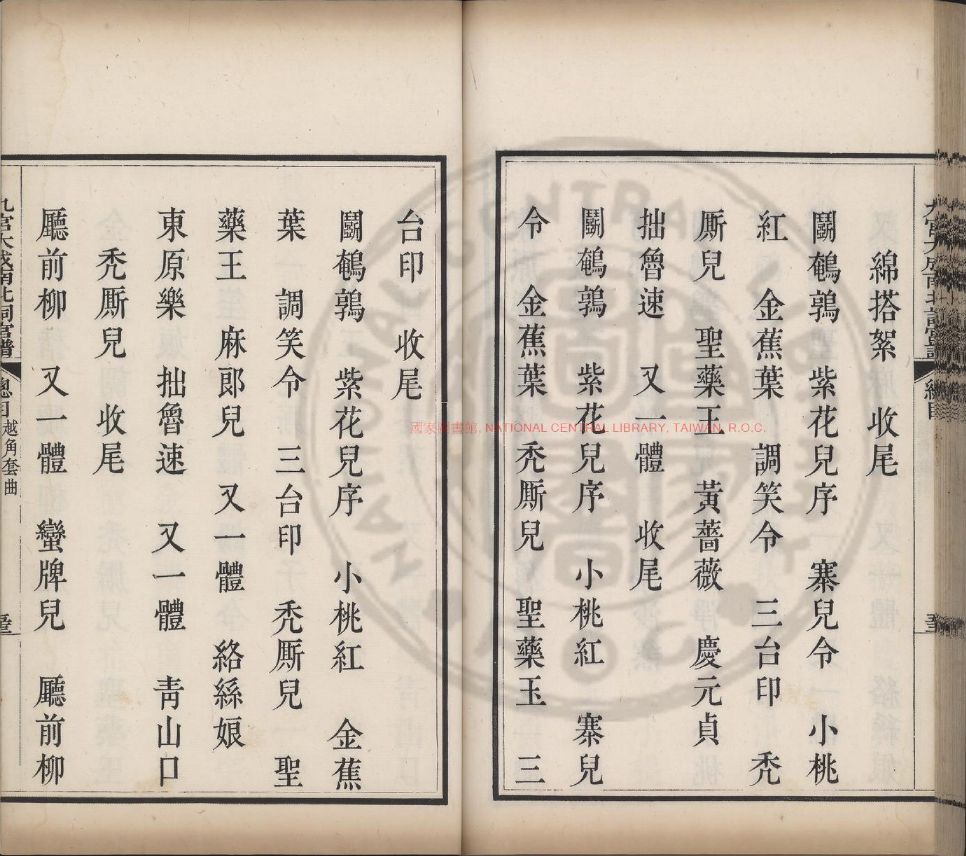 綿搭絮　收尾
鬭鵪鶉　紫花兒序　寨兒令　小桃
紅　金蕉葉　調笑令　三台印　禿
厮兒　聖藥王　黃薔薇　慶元貞
拙魯速　又一體　收尾
鬭鵪鶉　紫花兒序　小桃紅　寨兒
令　金蕉葉　禿厮兒　聖藥王　三
台印　收尾
鬭鵪鶉　紫花兒序　小桃紅　金蕉
葉　調笑令　三台印　禿厮兒　聖
藥王　麻郎兒　又一體　絡絲娘
東原樂　拙魯速　又一體　靑山口
禿厮兒　收尾
廳前柳　又一體　蠻牌兒　廳前柳
九宮大成南北詞宮譜　總目　越角套曲
國家圖書館, NATIONAL CENTRAL LIBRARY, TAIWAN, R.O.C.